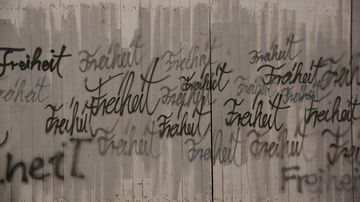 Freiheit
Freiheit
Freiheit
Freiheit
Freiheit
Freiheit
Freiheit
Freiheit
Freiheit
Freiheit
Freiheit
Freiheit
Freiheit
Freiheit
Freiheit
Freiheit
Freiheit
heit
Freiheit